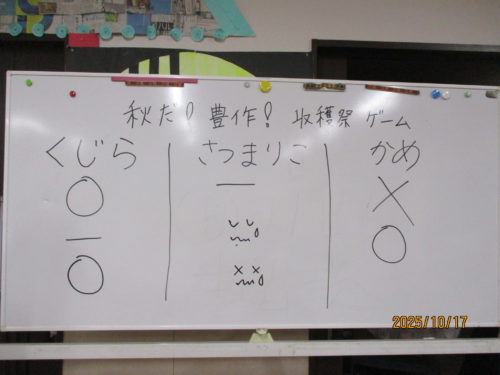 秋だ!豊作!収穫祭ゲーム
くじら さつまりこ かめ
○ ー ×
ー ○
○
2025/10/17